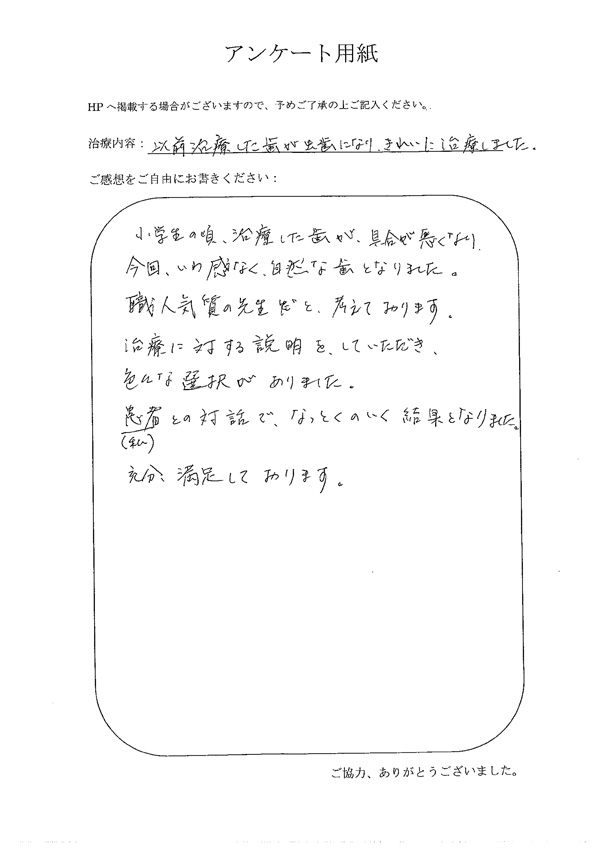 アンケート用紙
HPへ掲載する場合がございますので、予めご了承の上ご記入ください。
治療内容：以前治療した歯が虫歯になり、きれいに治療しました。
ご感想をご自由にお書きください：
小学生の頃、治療した歯が、具合が悪くなり、
今回、いわ感なく、自然な歯となりました。
職人気質の先生だと、考えております。
治療に対する説明を、していただき、
色んな選択がありました。
患者との対話で、なっとくのいく結果となりました。
(私)
充分、満足しております。
ご協力、ありがとうございました。